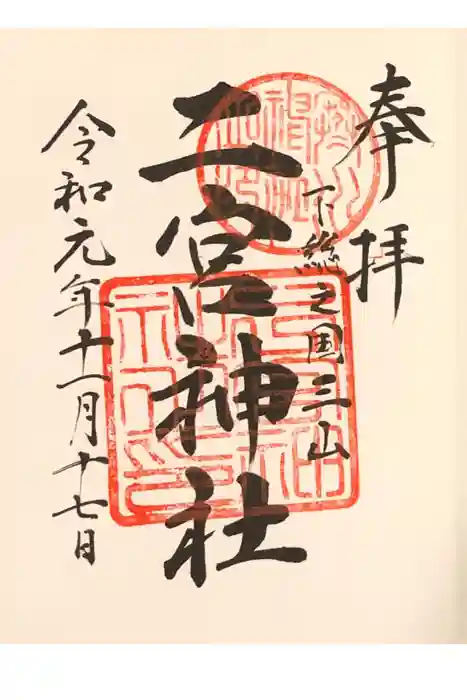 奉拝
下総之国三山
二宮神社
令和元年十一月十七日